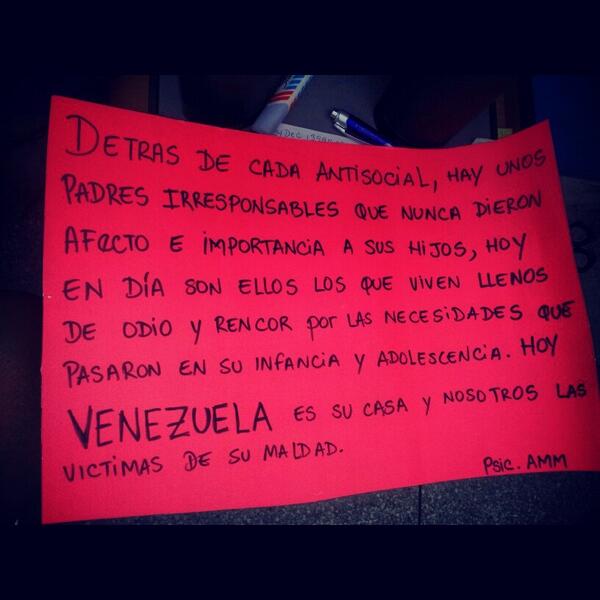 DETRAS DE CADA ANTISOCIAL, HAY UNOS
PADRES IRRESPONSABLES QUE NUNCA DIERON
AFECTO E IMPORTANCIA A SUS HIJOS, HOY
EN DÍA SON ELLOS LOS QUE VIVEN LLENOS
DE ODIO Y RENCOR POR LAS NECESIDADES QUE
PASARON EN SU INFANCIA Y ADOLESCENCIA. HOY
VENEZUELA ES SU CASA Y NOSOTROS LAS
VICTIMAS DE SU MALDAD.
Psic. AMM